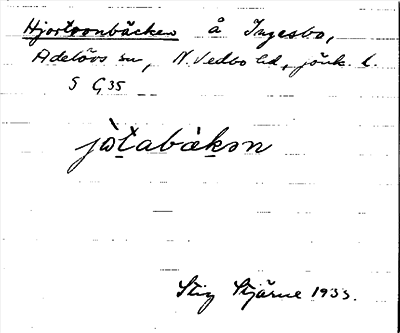 Hjortronbäcken å Ingesbo,
Adelövs sn, N. Vedbo hd, jönk. l.
S Ç 35
jò̀t̠abàk̠ən
Stig Stjärne 1933.